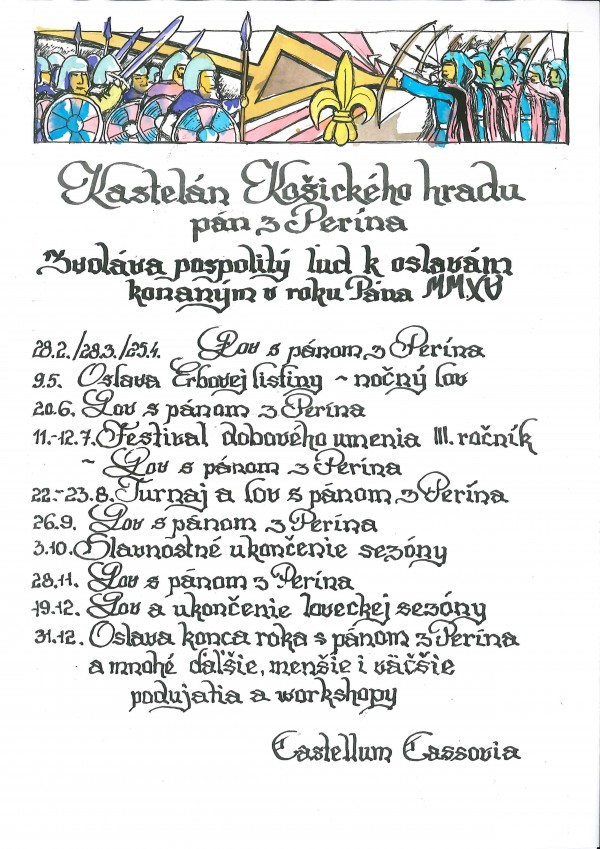 Kastelán Košického hradu
pán z Perína
Zvoláva pospolitý lud k oslavám
konaným v roku Pána MMXV
28.2./28.3./25.4. Lov s pánom z Perína
9.5. Oslava Erbovej listiny ~ nočný lov
20.6. Lov s pánom z Perína
11.-12.7. Festival dobového umenia III. ročník
~ Lov s pánom z Perína
22.-23.8. Turnaj a lov s pánom z Perína
26.9. Lov s pánom z Perína
3.10. Slavnostné ukončenie sezóny
28.11. Lov s pánom z Perína
19.12. Lov a ukončenie loveckej sezóny
31.12. Oslava konca roka s pánom z Perína
a mnohé ďaľšie, menšie i väčšie
podujatia a workshopy
Castellum Cassovia